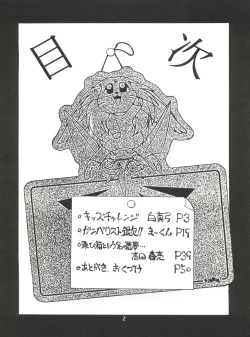 目次
キッズチャレンジ 白寿弓 P3
ガンバリスト駿!! まーくん P19
高田 P39
あとがき、おくづけ P50
2